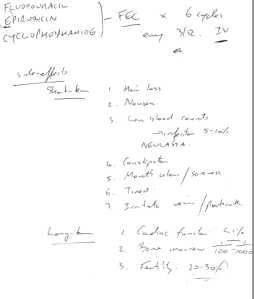 FLUOROURACIL
EPIRUBICIN – FEC x 6 cycles
CYCLOPHOSPHAMIDE every 3/52. IV
side-effects
Short-term 1. Hair loss
2. Nausea
3. Low blood counts
→ infection 5-10%
NEULASTA
4. Constipation
5. Mouth ulcers / soreness
6. Tired
7. Irritate veins /
Long-term 1. Cardiac function <1%
2. Bone marrow 1/100 - 1/1000
3. Fertility 20-30%